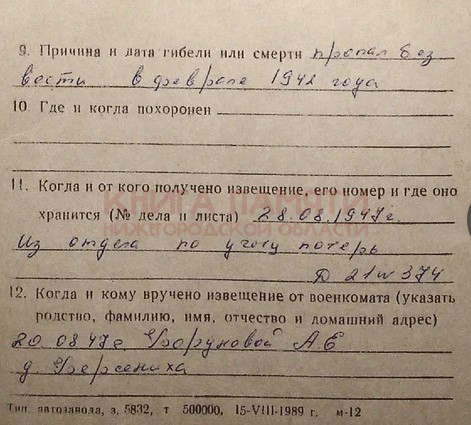 9. Причина и дата гибели или смерти пропал без
вести в феврале 1942 года
10. Где и когда похоронен
11. Когда и от кого получено извещение, его номер и где оно
хранится (№ дела и листа) 28.08.1947г.
КНИГА ПАМЯТИ
НИЖЕГОРОДСКОЙ ОБЛАСТИ
Из отдела по учету потерь
Д 21 и 374
12. Когда и кому вручено извещение от военкомата (указать
родство, фамилию, имя, отчество и домашний адрес)
20 08 47г А Е
д.
Тип. автозавода, з. 5832, т 500000, 15-VIII-1989 г. м-12